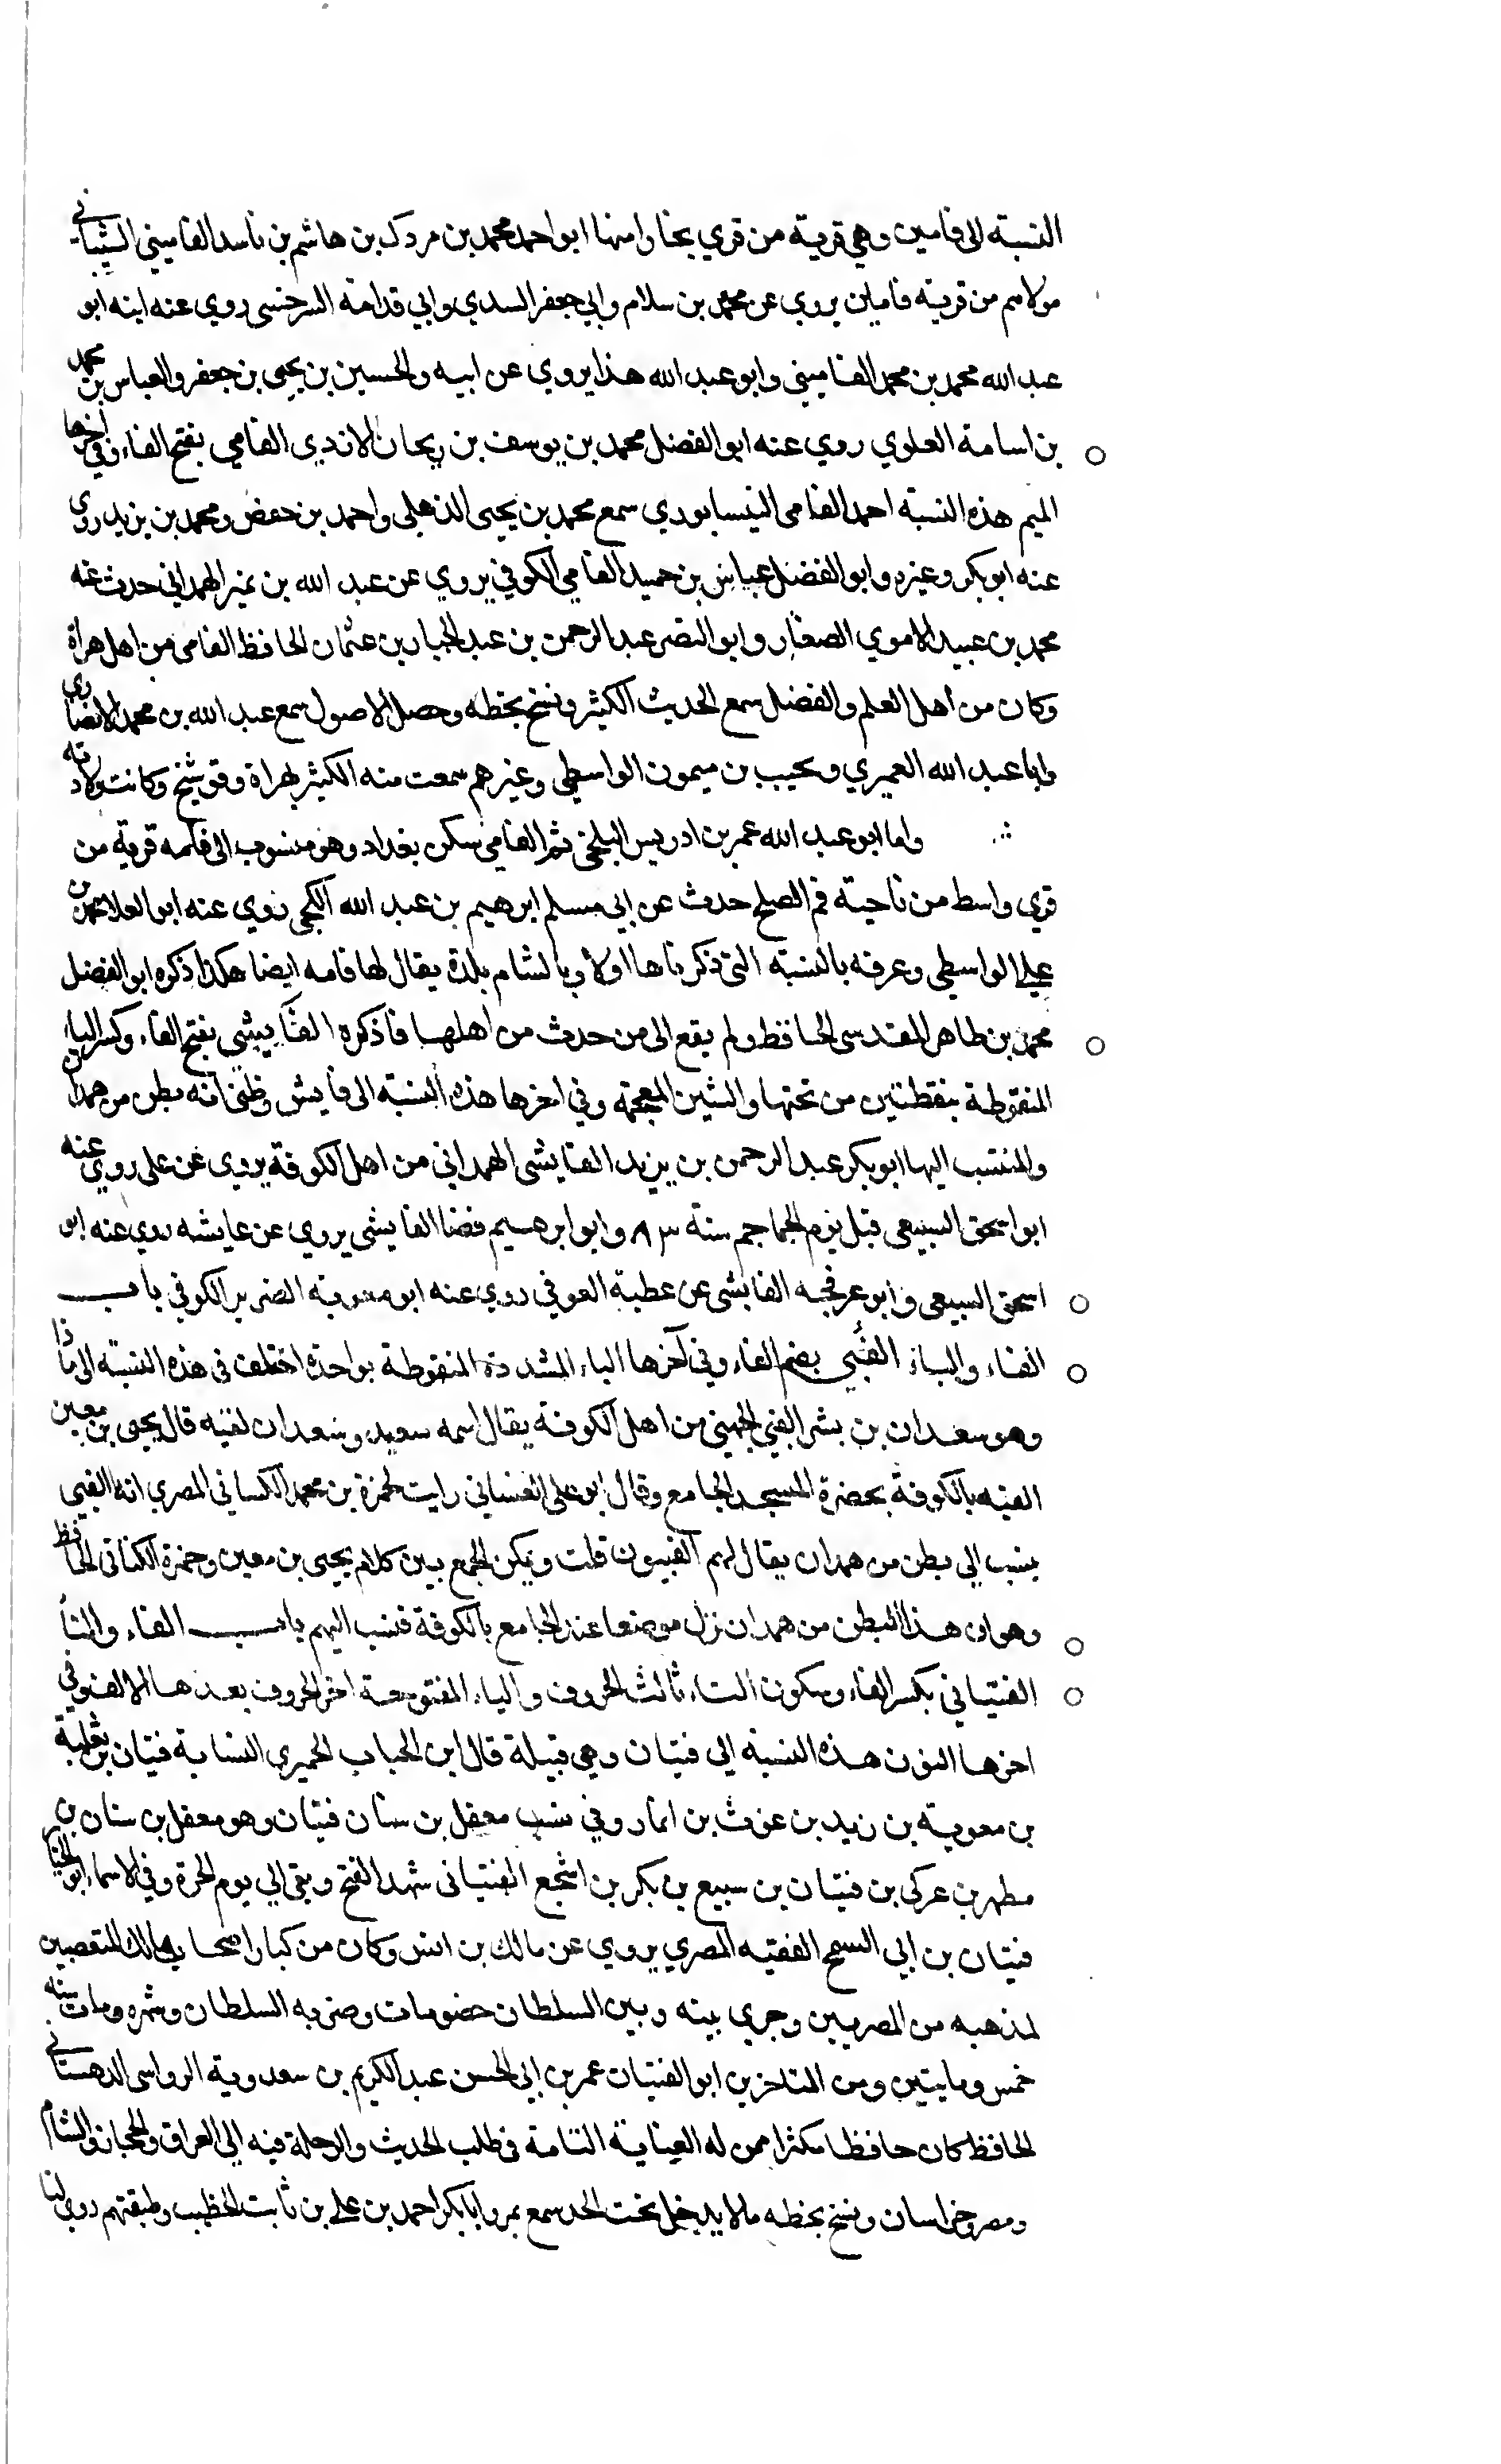 النسبة الى فامين وهي قرية من قري بخارا منها ابو احمد محمد بن مردك بن هاشم بن ناسد الفاميني الشيباني
مولاهم من قرية فامين يروي عن محمد بن سلام وابي جعفر السدي وابي قدامة السرخسي روي عنه ابنه ابو
عبد الله محمد بن محمد الفاميني وابو عبد الله هذا يروي عن ابيه والحسين بن يحيى بن جعفر والعباس بن محمد
بن اسامة العلوي روي عنه ابو الفضل محمد بن يوسف بن ريحان الاندبي الفامي بفتح الفاء وفي آخرها
الميم هذه النسبة احمد الفامي النيسابوري سمع محمد بن يحيى الذهلي واحمد بن حفص ومحمد بن يزيد روي
عنه ابو بكر وغيره وابو الفضل عباس بن حميد الفامي الكوفي يروي عن عبد الله بن نمير الهمداني حدث عنه
محمد بن عبيد الاموي الصفار وابو النضر عبد الرحمن بن عبد الجبار بن عثمان الحافظ الفامي من اهل هراة
وكان من اهل العلم والفضل سمع الحديث الكثير ونسخ بخطه وحصل الاصول سمع عبد الله بن محمد الانصاري
وابا عبد الله العميري ونجيب بن ميمون الواسطي وغيرهم سمعت منه الكثير بهراة وفوشنج وكانت ولادته
واما ابو عبد الله عمر بن ادريس البلخي ثم الفامي سكن بغداد وهو منسوب الى فامه قرية من
قري واسط من ناحية فم الصلح حدث عن ابي مسلم ابرهيم بن عبد الله الكجي روي عنه ابو العلا محمد بن
علي الواسطي وعرفه بالنسبة التي ذكرناها اولا وبالشام بلدة يقال لها فامه ايضا هكذا ذكره ابو الفضل
محمد بن طاهر المقدسي الحافظ ولم يقع الى من حدث من اهلها فاذكره الفاييشي بفتح الفاء وكسر الياء
المنقوطة بنقطتين من تحتها والشين المعجمة وفي اخرها هذه النسبة الى فايش وظني انه بطن من همدان
والمنتسب اليها ابو بكر عبد الرحمن بن يزيد الفايشي الهمداني من اهل الكوفة يروي عن علي روي عنه
ابو اسحق السبيعي قتل يوم الجماجم سنة ٨٣ وابو ابرهيم فضا الفايشي يروي عن عايشه روي عنه ابو
اسحق السبيعي وابو عرفجه الفايشي عن عطية العوفي روي عنه ابو معوية الضرير الكوفي باب
الفاء والباء الفُبي بضم الفاء وفي آخرها الباء المشددة المنقوطة بواحدة اختلف في هذه النسبة الى ماذا
وهو سعدان بن بشر الفبي الجهني من اهل الكوفة يقال اسمه سعيد وسعدان لقبه قال يحيى بن معين
الفبه بالكوفة بحضرة المسجد الجامع وقال ابو علي الغساني رايت لحمزة بن محمد الكساني المصري انه الفبي
ينسب الي بطن من همدان يقال لهم الفبيون قلت ويمكن الجمع بين كلام يحيى بن معين وحمزة الكناني الحافظ
وهو ان هذا البطن من همدان نزل موضعا عند الجامع بالكوفة فنسب اليهم باب الفاء والتا
الفتياني بكسر الفاء وسكون التاء ثالث الحروف والياء المفتوحة اخر الحروف بعدها الالف وفي
اخرها النون هذه النسبة الي فتيان وهي قبيلة قال ابن الحباب الحميري النسابة فتيان بن ثعلبة
بن معوية بن زيد بن غوث بن انمار وفي نسب معقل بن سنان فتيان وهو معقل بن سنان بن
مطهر بن عركى بن فتيان بن سبيع بن بكر بن اشجع الفتياني شهد الفتح وبقي الي يوم الحرة وفي الاسماء ابو
فتيان بن ابي السمح الفقيه المصري يروي عن مالك بن انس وكان من كبار اصحاب مالك المتعصبين
لمذهبه من المصريين وجري بينه وبين السلطان خصومات وضربه السلطان وشهره ومات سنه
خمس ومايتين ومن المتاخرين ابو الفتيان عمر بن ابي الحسن عبد الكريم بن سعدوية الرواسي الدهستاني
الحافظ كان حافظا مكثرا ممن له العناية التامة في طلب الحديث والرحلة فيه الي العراق والحجاز والشام
ومصر وخراسان ونسخ بخطه ما لا يدخل تحت الحد سمع بمرو ابا بكر احمد بن علي بن ثابت الخطيب وطبقتهم روي لنا